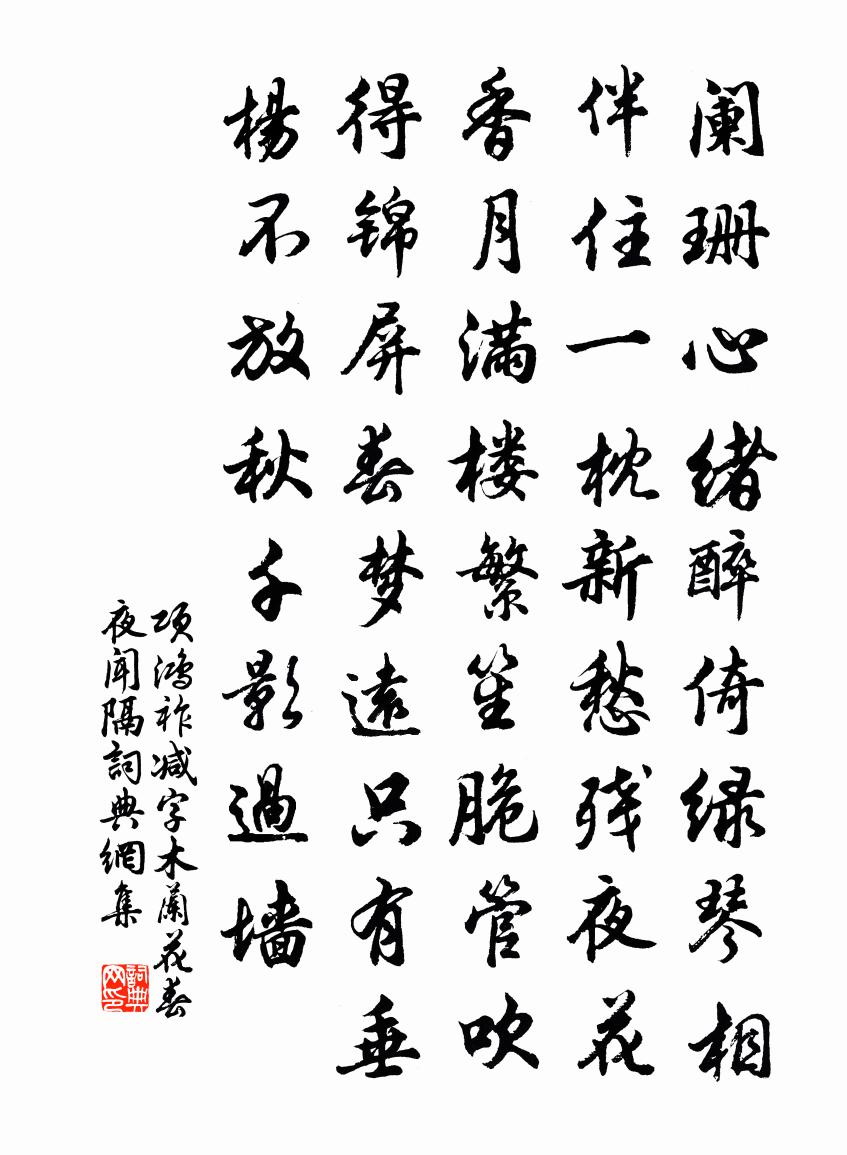 阑珊心绪醉倚绿琴相
伴住一枕新愁残夜花
香月满楼繁笙脆管吹
得锦屏春梦远只有垂
楊不放秋千影過墙
项鸿祚减字木蘭花春
夜闻隔詞典網集
詞典
网印